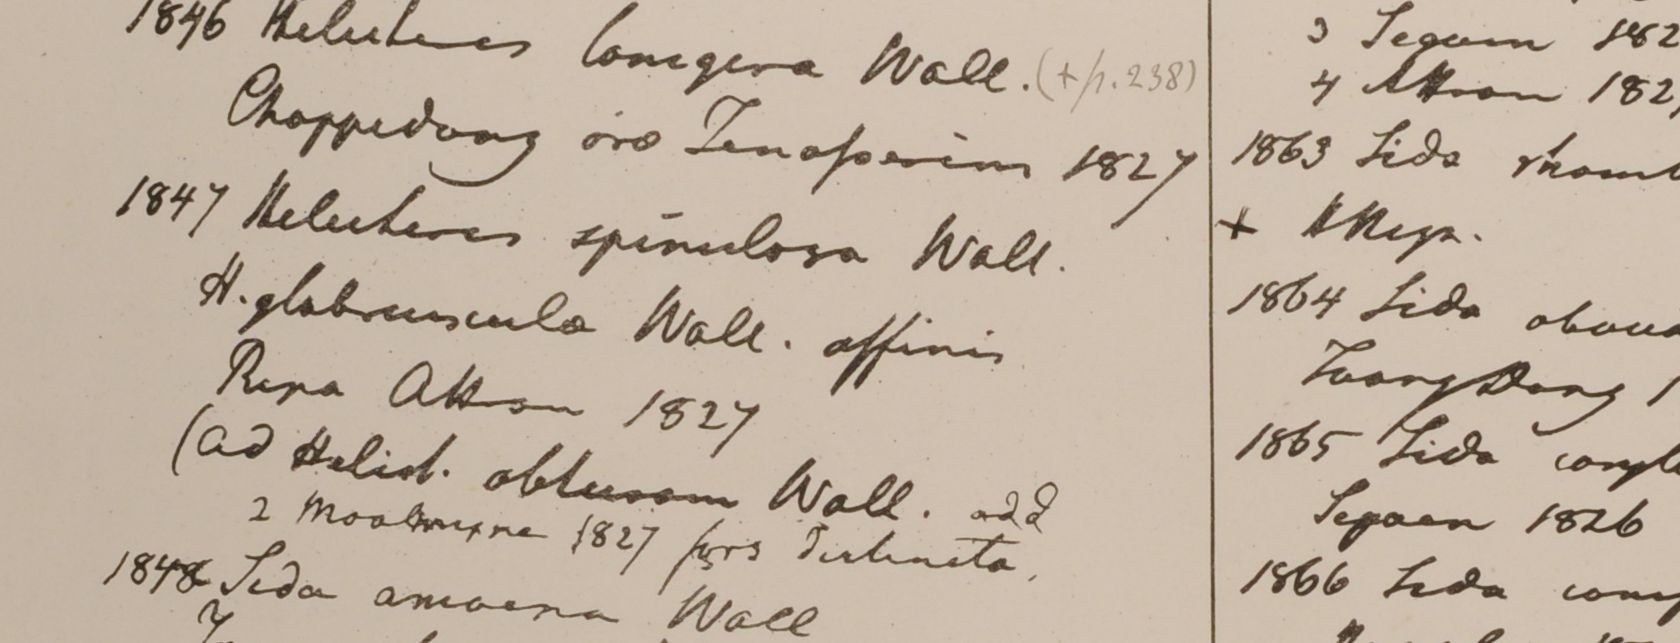 1846 Helicteres lanigera Wall. (+ p. 238)
Choppedong ora Tenasserim 1827
1847 Helicteres spinulosa Wall.
H. glabriuscula Wall. affinis
Ripa Attran 1827
(ad Helict. obtusam Wall. add
2 Moalmyne 1827 fors distincta.
1848 Sida amoena Wall
3 Segaen 182
4 Attran 182
1863 Sida rhomb
+
1864 Sida obova
Taong Dong 1
1865 Sida
Segaen 1826
1866 Sida